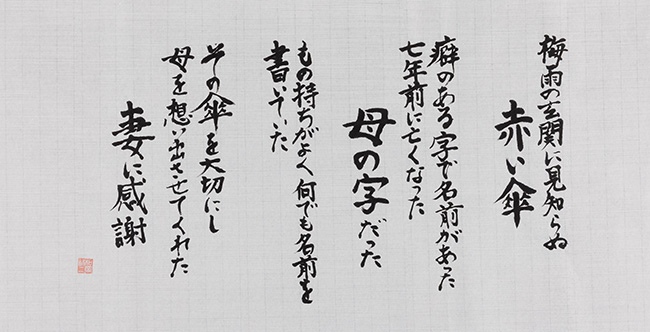 梅雨の玄関に見知らぬ
赤い傘
癖のある字で名前があった
七年前に亡くなった
母の字だった
もの持ちがよく何でも名前を
書いていた
その傘を大切にし
母を想い出させてくれた
妻に感謝